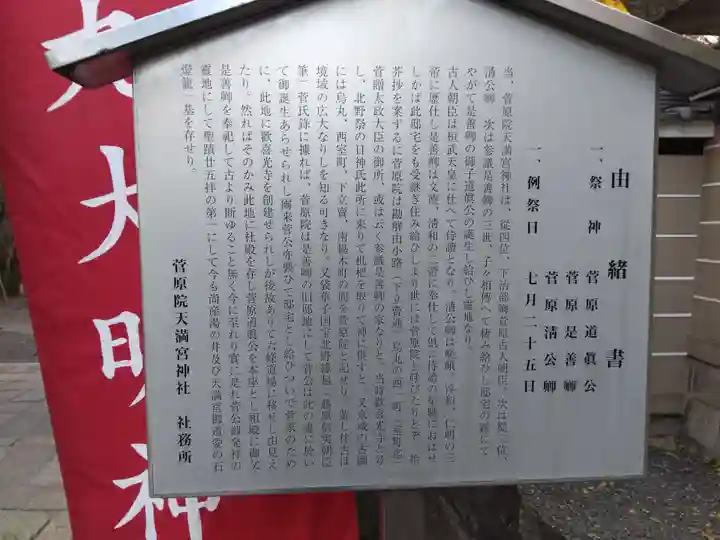 由緒書
一、祭神 菅原道眞公
菅原是善卿
菅原淸公卿
一、例祭日 七月二十五日
当、菅原院天満宮神社は、従四位、下治部卿菅原古人朝臣、次は従三位、
淸公卿 次は参議是善卿の三世、子々相傳へて棲み給ひし邸宅の跡にて
やがて是善卿の御子道眞公の誕生し給ひし霊地なり。
古人朝臣は桓武天皇に仕へて侍讀となり、淸公卿は嵯峨、淳和、仁明の三
帝に歴仕し是善卿は文徳、清和の二帝に奉仕して倶に侍讀の
しかば此邸宅をも受継ぎ住み給ひしより世には菅原院と呼びたりとぞ 拾
芥抄を案ずるに菅原院は勘解由小路(下立賣通)烏丸の西一町(室町迄)
菅贈太政大臣の御所、或は云く参議是善卿の家なりと、当時歓喜光寺と号
し、北野祭の日神氏此所に来りて枇杷を取りて神に供すと、又京城の古圖
には烏丸、西室町、下立賣、南椹木町の間を菅原院と記せり、
境域の広大なりしを知る可きなり。又袋草子国宝北野縁起
筆)菅氏録に據れば、菅原院は是善卿の旧邸地にして菅公は此の處に於い
て御誕生あらせられし爾来菅公亦襲ひて邸宅とし給ひついで菅家のため
に、此地に歓喜光寺を創建せられしが後故ありて六條道場に移せし由見え
たり。然ればそのかみ此地に社殿を存し菅原道眞公を本座とし相殿に御父
是善卿を奉祀して古より断ゆること無く今に至れり実に是れ菅公御発祥の
霊地にして聖蹟廿五拝の第一にして今も尚産湯の井及び天満宮御遺愛の石
燈籠一基を存せり。
菅原院天満宮神社 社務所
大明神